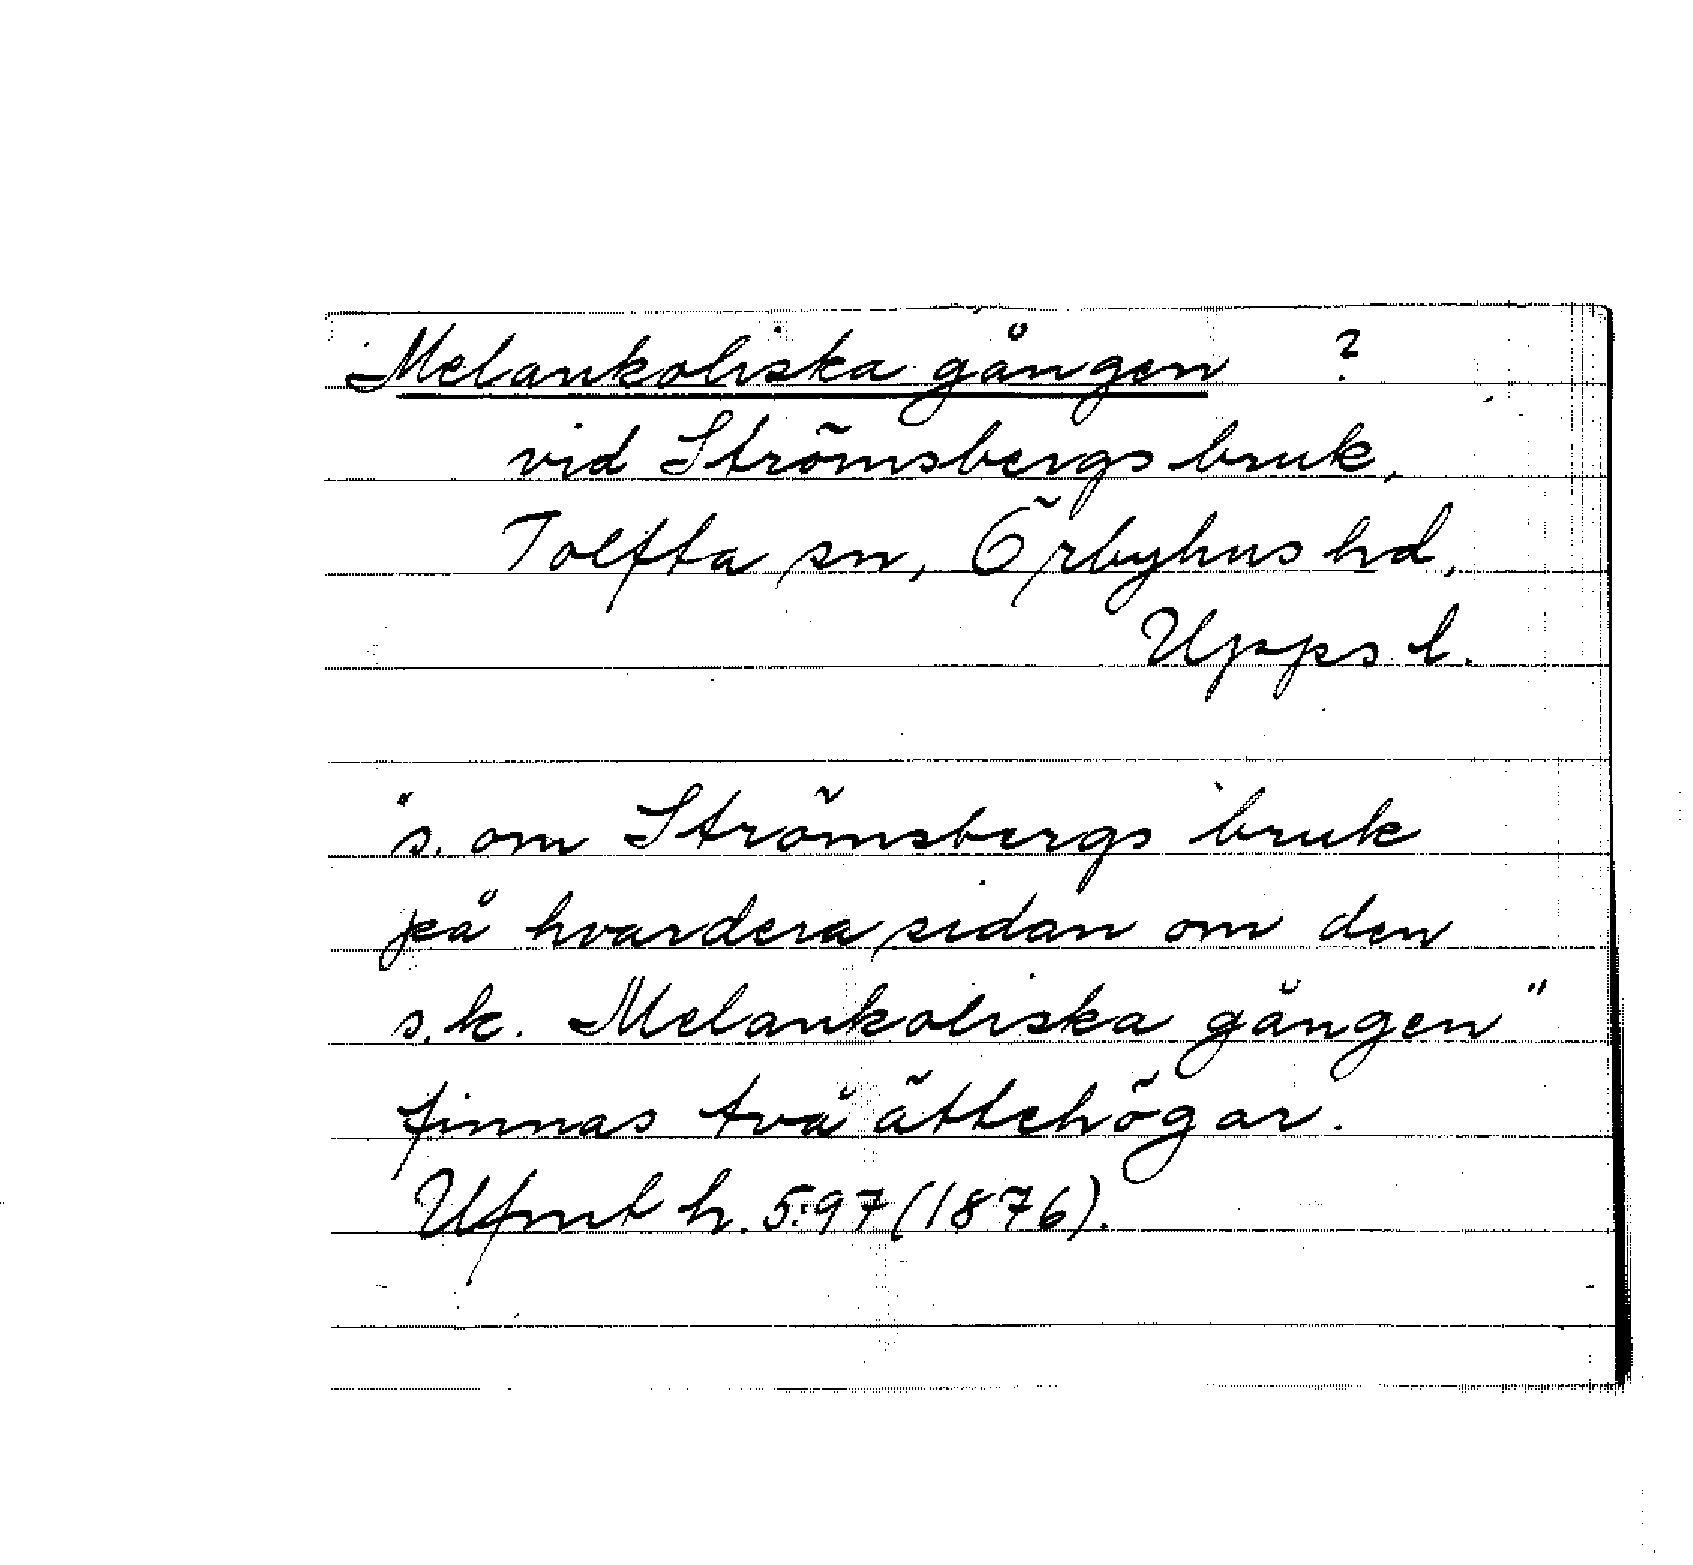 Melankoliska gången ?
vid Strömsbergs bruk,
Tolfta sn, Örbyhus hd,
Upps l.
"s. om Strömsbergs bruk
på hvardera sidan om den
s.k. Melankoliska gången"
finnas två ättehögar.
Ufmt h. 5:97 (1876).